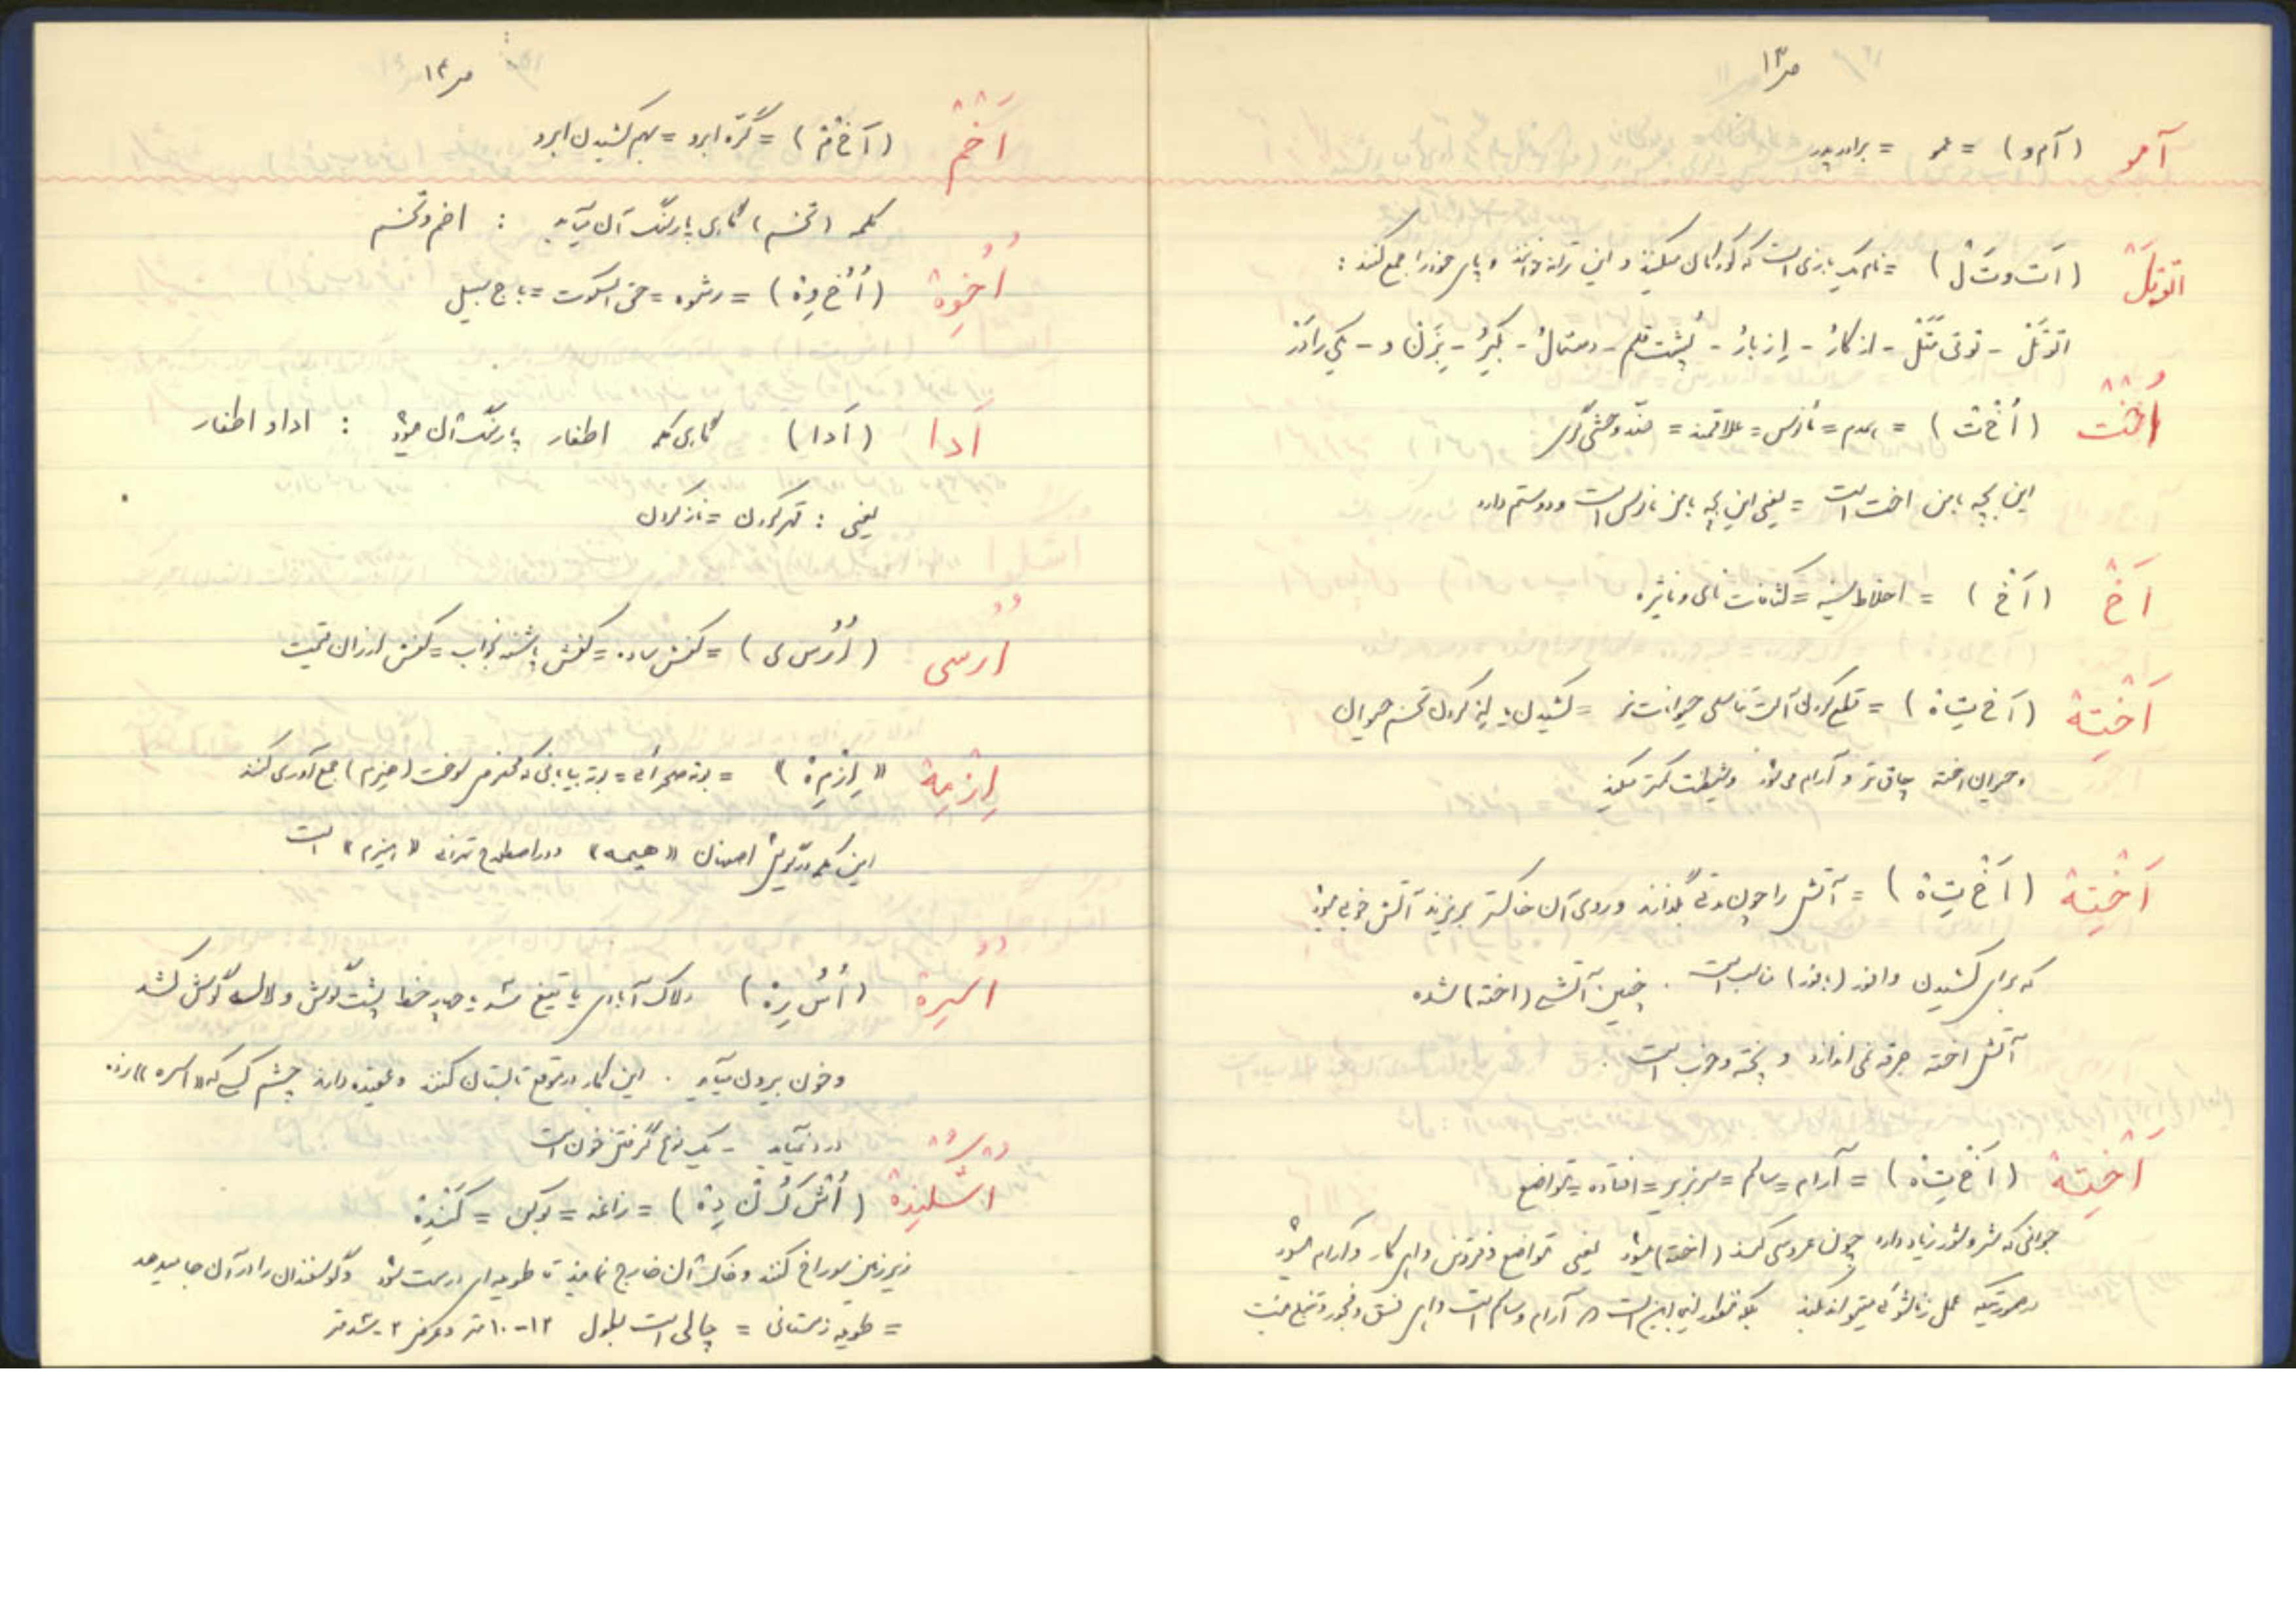 ص ۱۳
آمو (آ م و) = عمو = برادر پدر
اتوتل (اَ ت و تَ ل) = نام یک بازی است که کودکان میکنند و این ترانه خوانند و پای خود را جمع کنند :
اتوتل - توتی متل - از کار - از بار - پشت قلم - دستمال - بگیر - بزن و - یکی را در
اُخْت (اُ خْ ت) = همدم = مأنوس = علاقمند = ضد وحشی گری
این بچه با من اخت است = یعنی این بچه با من مأنوس است و دوستم دارد
اَخ (اَ خ) = اخلاط سینه = کثافات نای و نایژه
اَخْتِة (اَ خ تِ ة) = قطع کردن آلت تناسلی حیوانات نر = کشیدن یا له کردن تخم حیوان
و حیوان اخته چاق تر و آرام می شود و شیطنت کمتر میکند
اَخْتِة (اَ خ تِ ة) = آتش را چون مدتی بگذارند و روی آن خاکستر بریزند آتش خوبی میشود
که برای کشیدن وافور (بافور) مناسب است . چنین آتشی (اخته) شده
آتش اخته جرقه نمی اندازد و پخته و خوب است .
اَخْتِة (اَ خ تِ ة) = آرام = سالم = سربزیر = افتاده = متواضع
جوانی که شر و شور زیاد دارد چون عروسی کند (اخته) میشود یعنی متواضع و فروتن و اهل کار و آرام میشود
در صورتیکه عمل زناشوئی میتواند بکند بلکه منظور این است که آرام و سالم است و اهل فسق و فجور و نیست
ص ۱۴
اَخْم (اَ خ م) = گره ابرو = بهم کشیدن ابرو
کلمه (تخم) گاهی پارسنگ آن میآید : اخم و تخم
اُخْوِة (اُ خ وِ ة) = رشوه = حق السکوت = باج سبیل
اَدا (اَدا) گاهی کلمه اطفار پارسنگ آن میشود : ادا و اطفار
یعنی : قهر کردن = ناز کردن
اُرسی (اُ رْ س ی) = کفش ساده = کفش پاشنه نخواب = کفش ارزان قیمت
اِزْمِة «اِ زْ مِ ة» = بوته صحرائی = بوته بیابانی که محض سوخت (هیزم) جمع آوری کنند
این کلمه در گویش اصفهان «هیمه» و در اصطلاح تهرانی «هیزم» است
اُسْرِة (اُ سْ رِ ة) دلاک آبادی با تیغ سه یا چهار خط پشت گوش و لاله گوش کشد
و خون بیرون میآید . این کار در موقع تابستان کنند و عقیده دارند چشم کسی که «اسره» زده
درد نمیآید - یک نوع گرفتن خون است
اشکلندة (اُ ش کُ لْ نْ دِ ة) = زاغه = بوکن = کَنْدِة
زیر زمین سوراخ کنند و خاکش آن خارج نمایند تا طویله ای درست شود و گوسفندان را در آن جا میدهد
= طویله زمستانی = چالی است بطول ۱۲-۱۰ متر و عرض ۲ یا سه متر